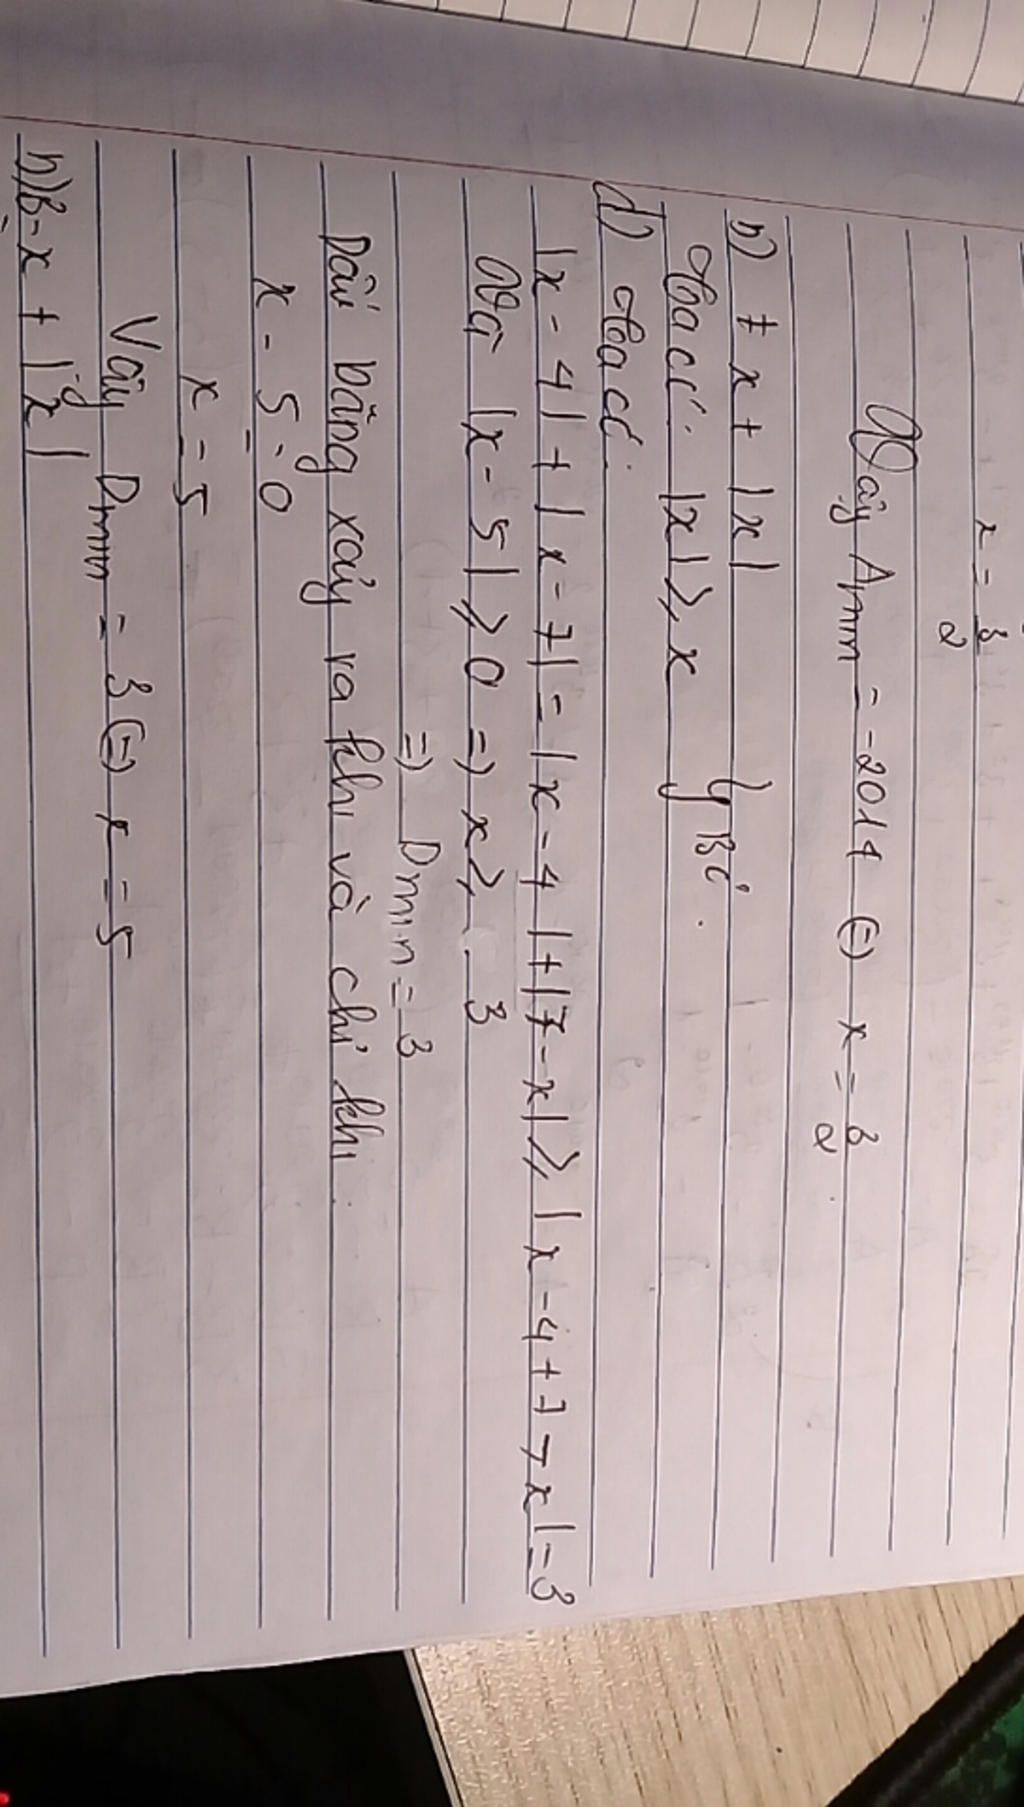 x = 3/2
Vậy Amin = -2014 (=) x = 3/2
b) x + |x|
Ta có: |x| ≥ x
d) Ta có:
|x - 4| + |x - 7| = |x - 4| + |7 - x| ≥ |x - 4 + 7 - x| = 3
Và |x - 5| ≥ 0 => x ≥ 3
=> Dmin = 3
Dấu bằng xảy ra khi và chỉ khi
x - 5 = 0
x = 5
Vậy Dmin = 3 (=) x = 5
b) B = x + |x|